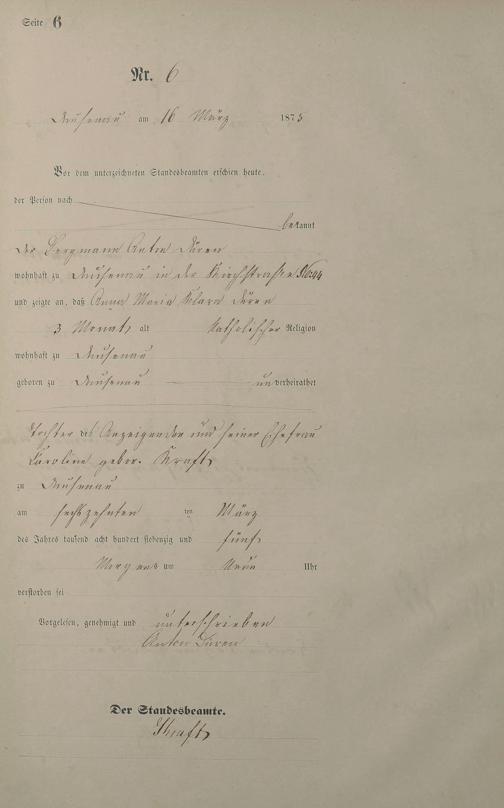 Seite 6
Nr. 6
Ausenau am 16 März 1875
Vor dem unterzeichneten Standesbeamten erschien heute,
der Person nach
bekannt
der Bergmann Anton Düren
wohnhaft zu Ausenau in der Kirchstraße No 44
und zeigte an, daß Anna Maria Klara Düren
3 Monat alt katholischer Religion
wohnhaft zu Ausenau
geboren zu Ausenau unverheirathet
Tochter des Anzeigenden und seiner Ehefrau
Karoline gebor. Kraft
zu Ausenau
am sechszehnten ten März
des Jahres tausend acht hundert siebenzig und fünf
Morgens um Uhr
verstorben sei
Vorgelesen, genehmigt und unterschrieben
Anton Düren
Der Standesbeamte.
Kraft